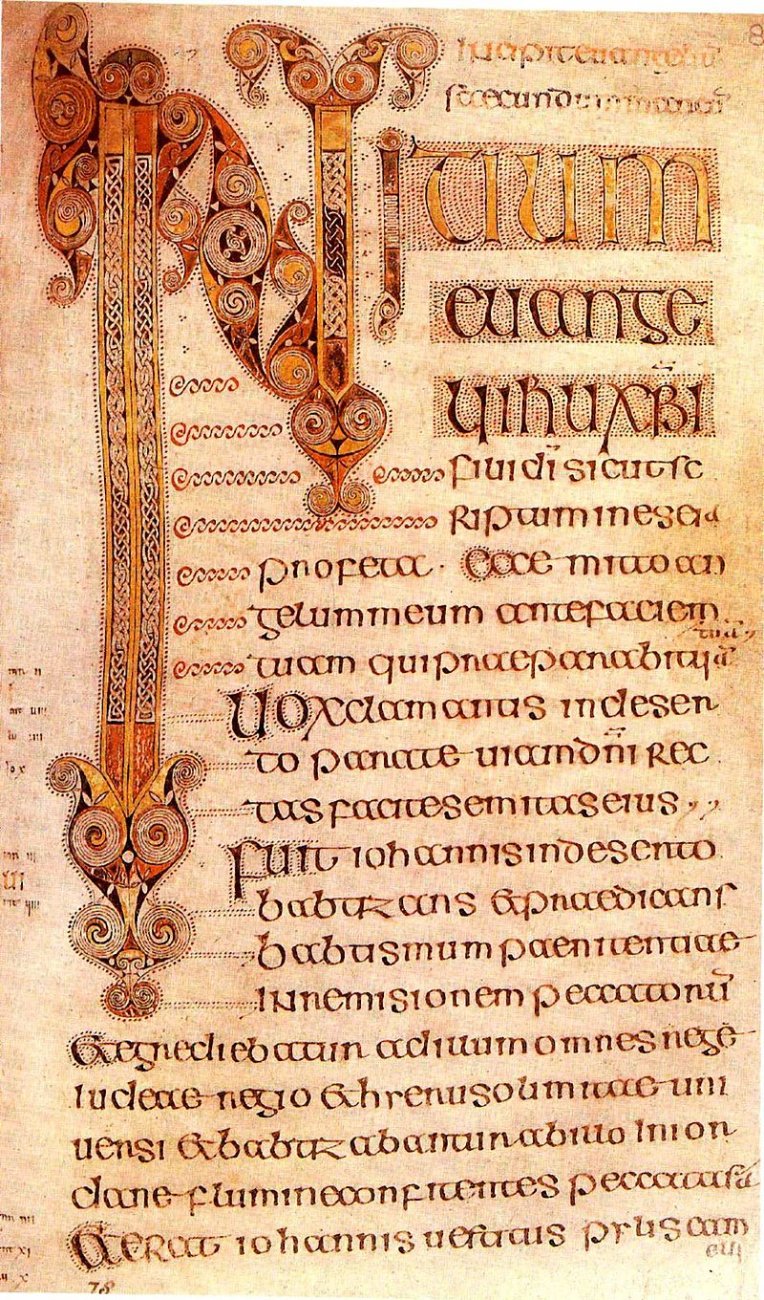 Incipit euangeliũ
secundum marcum
INITIUM
euange
lii ihũ xp̃i
fili dĩ sicut sc
riptum in eseia
profeta · Ecce mitto an
gelum meum ante faciem
tuam qui praeparabit uiã
tuã
Uox clamantis in deser
to parate uiam dñi rec
tas facite semitas eius ,,
Fuit iohannis in deserto
babtizans & praedicans
babtismum paenitentiae
in remisionem peccatorũ
& egrediebatur ad illum omnes rege
iudeae regio & hyerusolimitae uni
uersi & babtizabantur ab illo in ior
dane flumine confitentes peccata sã
& erat iohannis uestitus pylis cam
eli
78